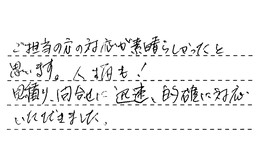 ご担当の方の対応が素晴らしかったと
思います。人柄も!
見積り、問合せに迅速、的確に対応
いただきました。